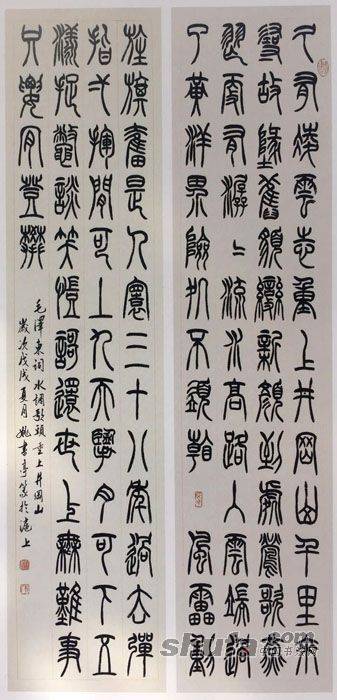 久有凌雲志重上井岡山千里來
尋故地舊貌變新顏到處鶯歌燕
舞更有潺〻流水高路入雲端過
了黃洋界險處不須看 風雷動
旌旗奮是人寰三十八年過去彈
指一揮間可上九天擥月可下五
洋捉鱉談笑凱歌還世上無難事
只要肯登攀
毛澤東詞水調歌頭重上井岡山
歲次戊戌夏月姚書亭篆於滬上